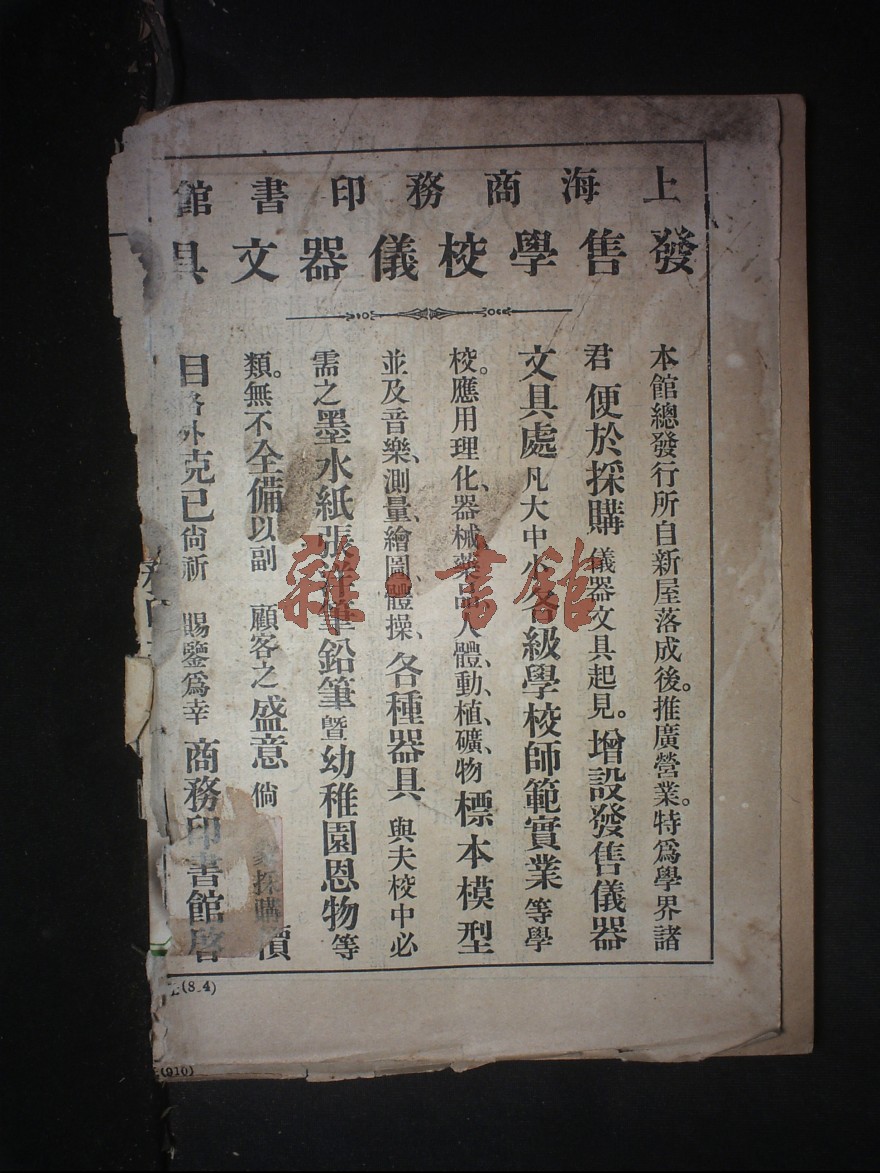 上海商務印書館
發售學校儀器文具
本館總發行所自新屋落成後。推廣營業。特爲學界諸
君 便於採購 儀器文具起見。增設發售儀器
文具處 凡大中小各級學校師範實業 等學
校。應用理化、器械、藥品、人體、動、植、礦、物 標本模型
並及音樂、測量、繪圖、體操、各種器具 與夫校中必
需之墨水紙張洋筆鉛筆 曁幼稚園恩物 等
類。無不全備以副 顧客之盛意 倘 採購價
目格外克己尙祈 賜鑒爲幸 商務印書館啓
(8_4)
(910)
雜·書館